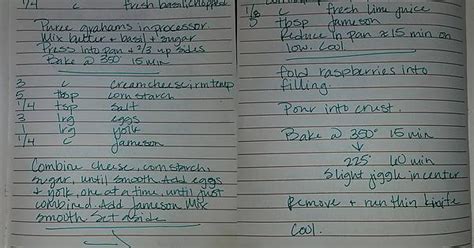 1/4 c fresh basil, chopped
Puree grahams in processor
Mix butter + basil + sugar
Press into pan + 2/3 up sides
Bake @ 350° 15 min
3 c Cream cheese, rm temp
5 tbsp corn starch
1/4 tsp Salt
3 lrg eggs
1 lrg yolk
1/4 c Jameson
Combine cheese, corn starch,
sugar, until smooth. Add eggs
+ yolk, one at a time, until just
combined. Add Jameson. Mix
smooth. Set aside
1/8 c fresh lime juice
5 tbsp Jameson
Reduce in pan ≈ 15 min on
low. Cool.
fold raspberries into
filling.
Pour into crust.
Bake @ 350° 15 min
↓
225° 60 min
Slight jiggle in center
Remove + run thin knife
Cool.